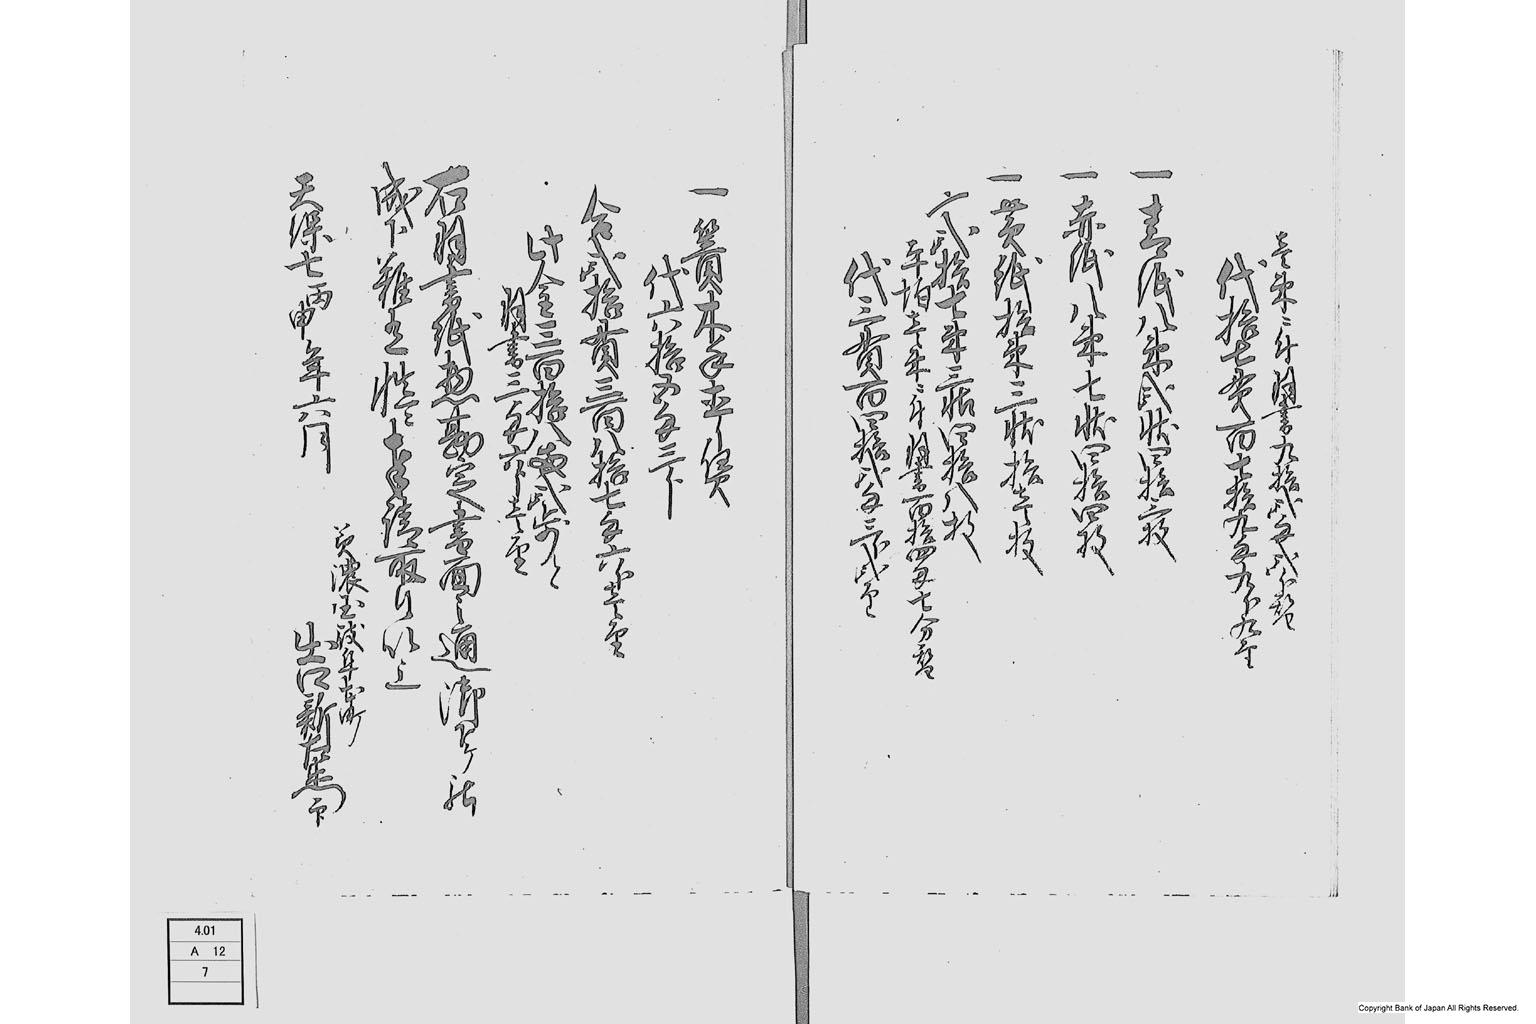 壱束ニ付羽書九拾弐匁弐分
代拾七貫百十拾九匁九分九厘
一 青紙八束弐状四拾六枚
一 赤紙八束七状四拾四枚
一 黄紙拾束三状拾壱枚
〆弐拾七束三状四拾八枚
平均壱束ニ付羽書百拾四匁七分
代三貫百四拾弐匁三分弐厘
一
賃
代六拾五匁三分
合弐拾貫三百八拾七匁六分壱厘
此金三百拾八両弐歩ト
羽書三匁六分壱厘
右羽書紙惣勘定書面之通御下ケ被
成下難有慥ニ奉請取候以上
天保七丙申年六月
美濃国岐阜
出口新左衛門
4.01
A 12
7
Copyright Bank of Japan All Rights Reserved.